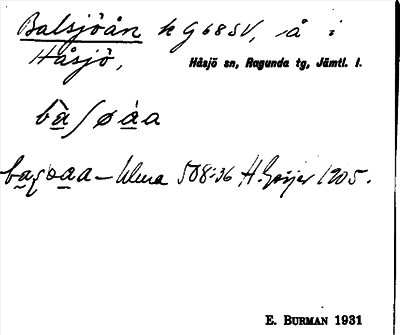 Balsjöån h G 68 SV, å i
Håsjö, Håsjö sn, Ragunda tg, Jämtl. l.
bà̲ʃøá̲a
Ulma 508:36 H. Geijer 1905.
E. BURMAN 1931